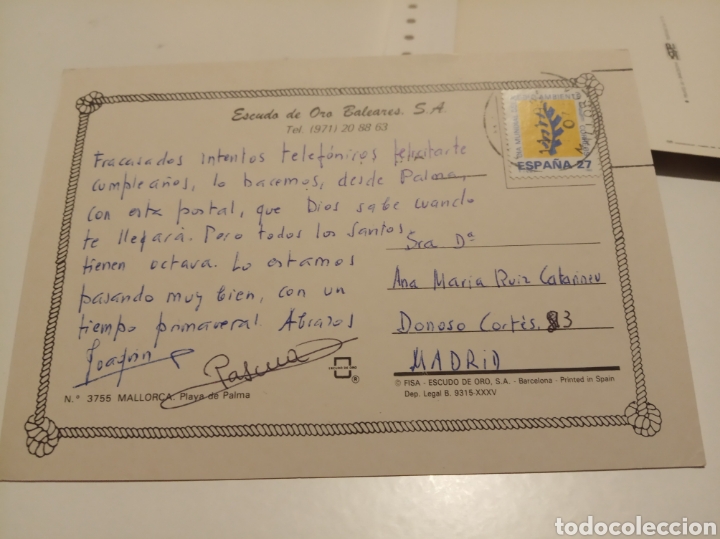 Escudo de Oro Baleares. S.A.
Tel. (971) 20 88 63
ESPAÑA 27
Fracasados intentos telefónicos felicitarte
cumpleaños, lo hacemos, desde Palma,
con esta postal, que Dios sabe cuando
te llegará. Pero todos los Santos
tienen octava. Lo estamos
pasando muy bien, con un
tiempo primaveral. Abrazos
Joaquin
Sra Dª
Ana María Ruiz
Donoso Cortés. 83
MADRID
ESCUDO DE ORO
®
N.° 3755 MALLORCA. Playa de Palma
© FISA - ESCUDO DE ORO, S.A. - Barcelona - Printed in Spain
Dep. Legal B. 9315-XXXV
todocoleccion